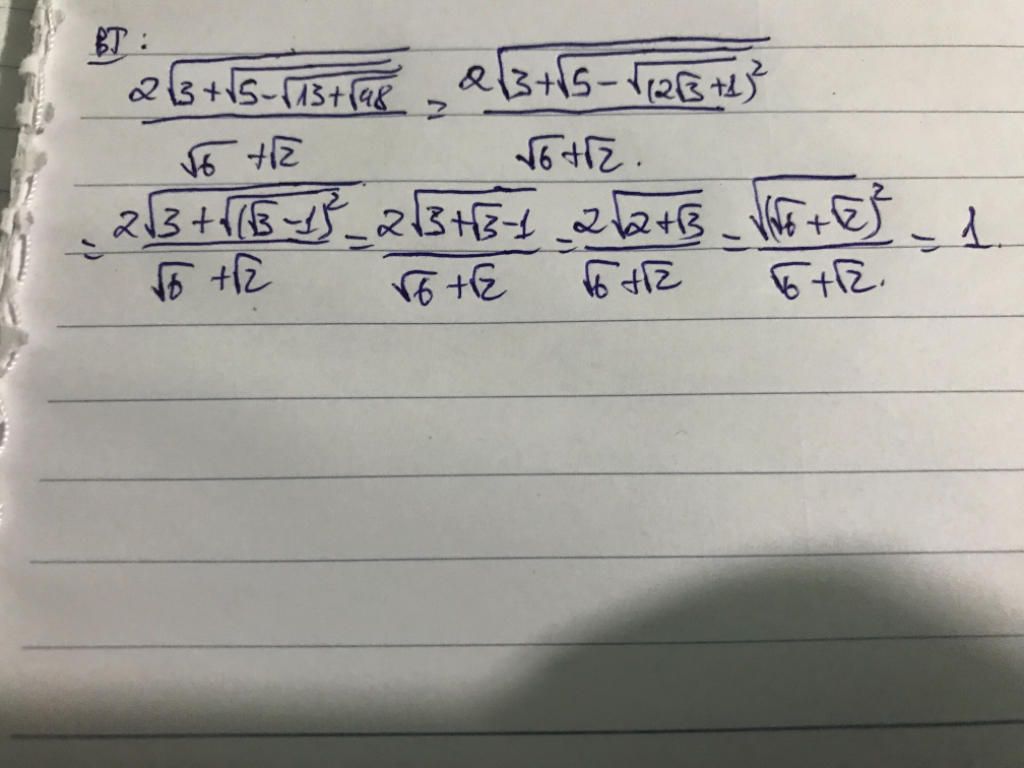 BT:
\frac{2\sqrt{3+\sqrt{5-\sqrt{13+\sqrt{48}}}}}{\sqrt{6}+\sqrt{2}} = \frac{2\sqrt{3+\sqrt{5-\sqrt{(2\sqrt{3}+1)^2}}}}{\sqrt{6}+\sqrt{2}}.
= \frac{2\sqrt{3+\sqrt{(\sqrt{3}-1)^2}}}{\sqrt{6}+\sqrt{2}} = \frac{2\sqrt{3+\sqrt{3}-1}}{\sqrt{6}+\sqrt{2}} = \frac{2\sqrt{2+\sqrt{3}}}{\sqrt{6}+\sqrt{2}} = \frac{\sqrt{(\sqrt{6}+\sqrt{2})^2}}{\sqrt{6}+\sqrt{2}.} = 1.